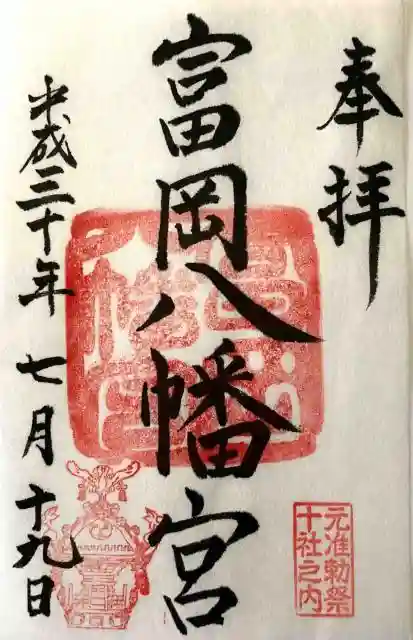 奉拝
富岡八幡宮
平成三十年七月十九日
元准勅祭
十社之内